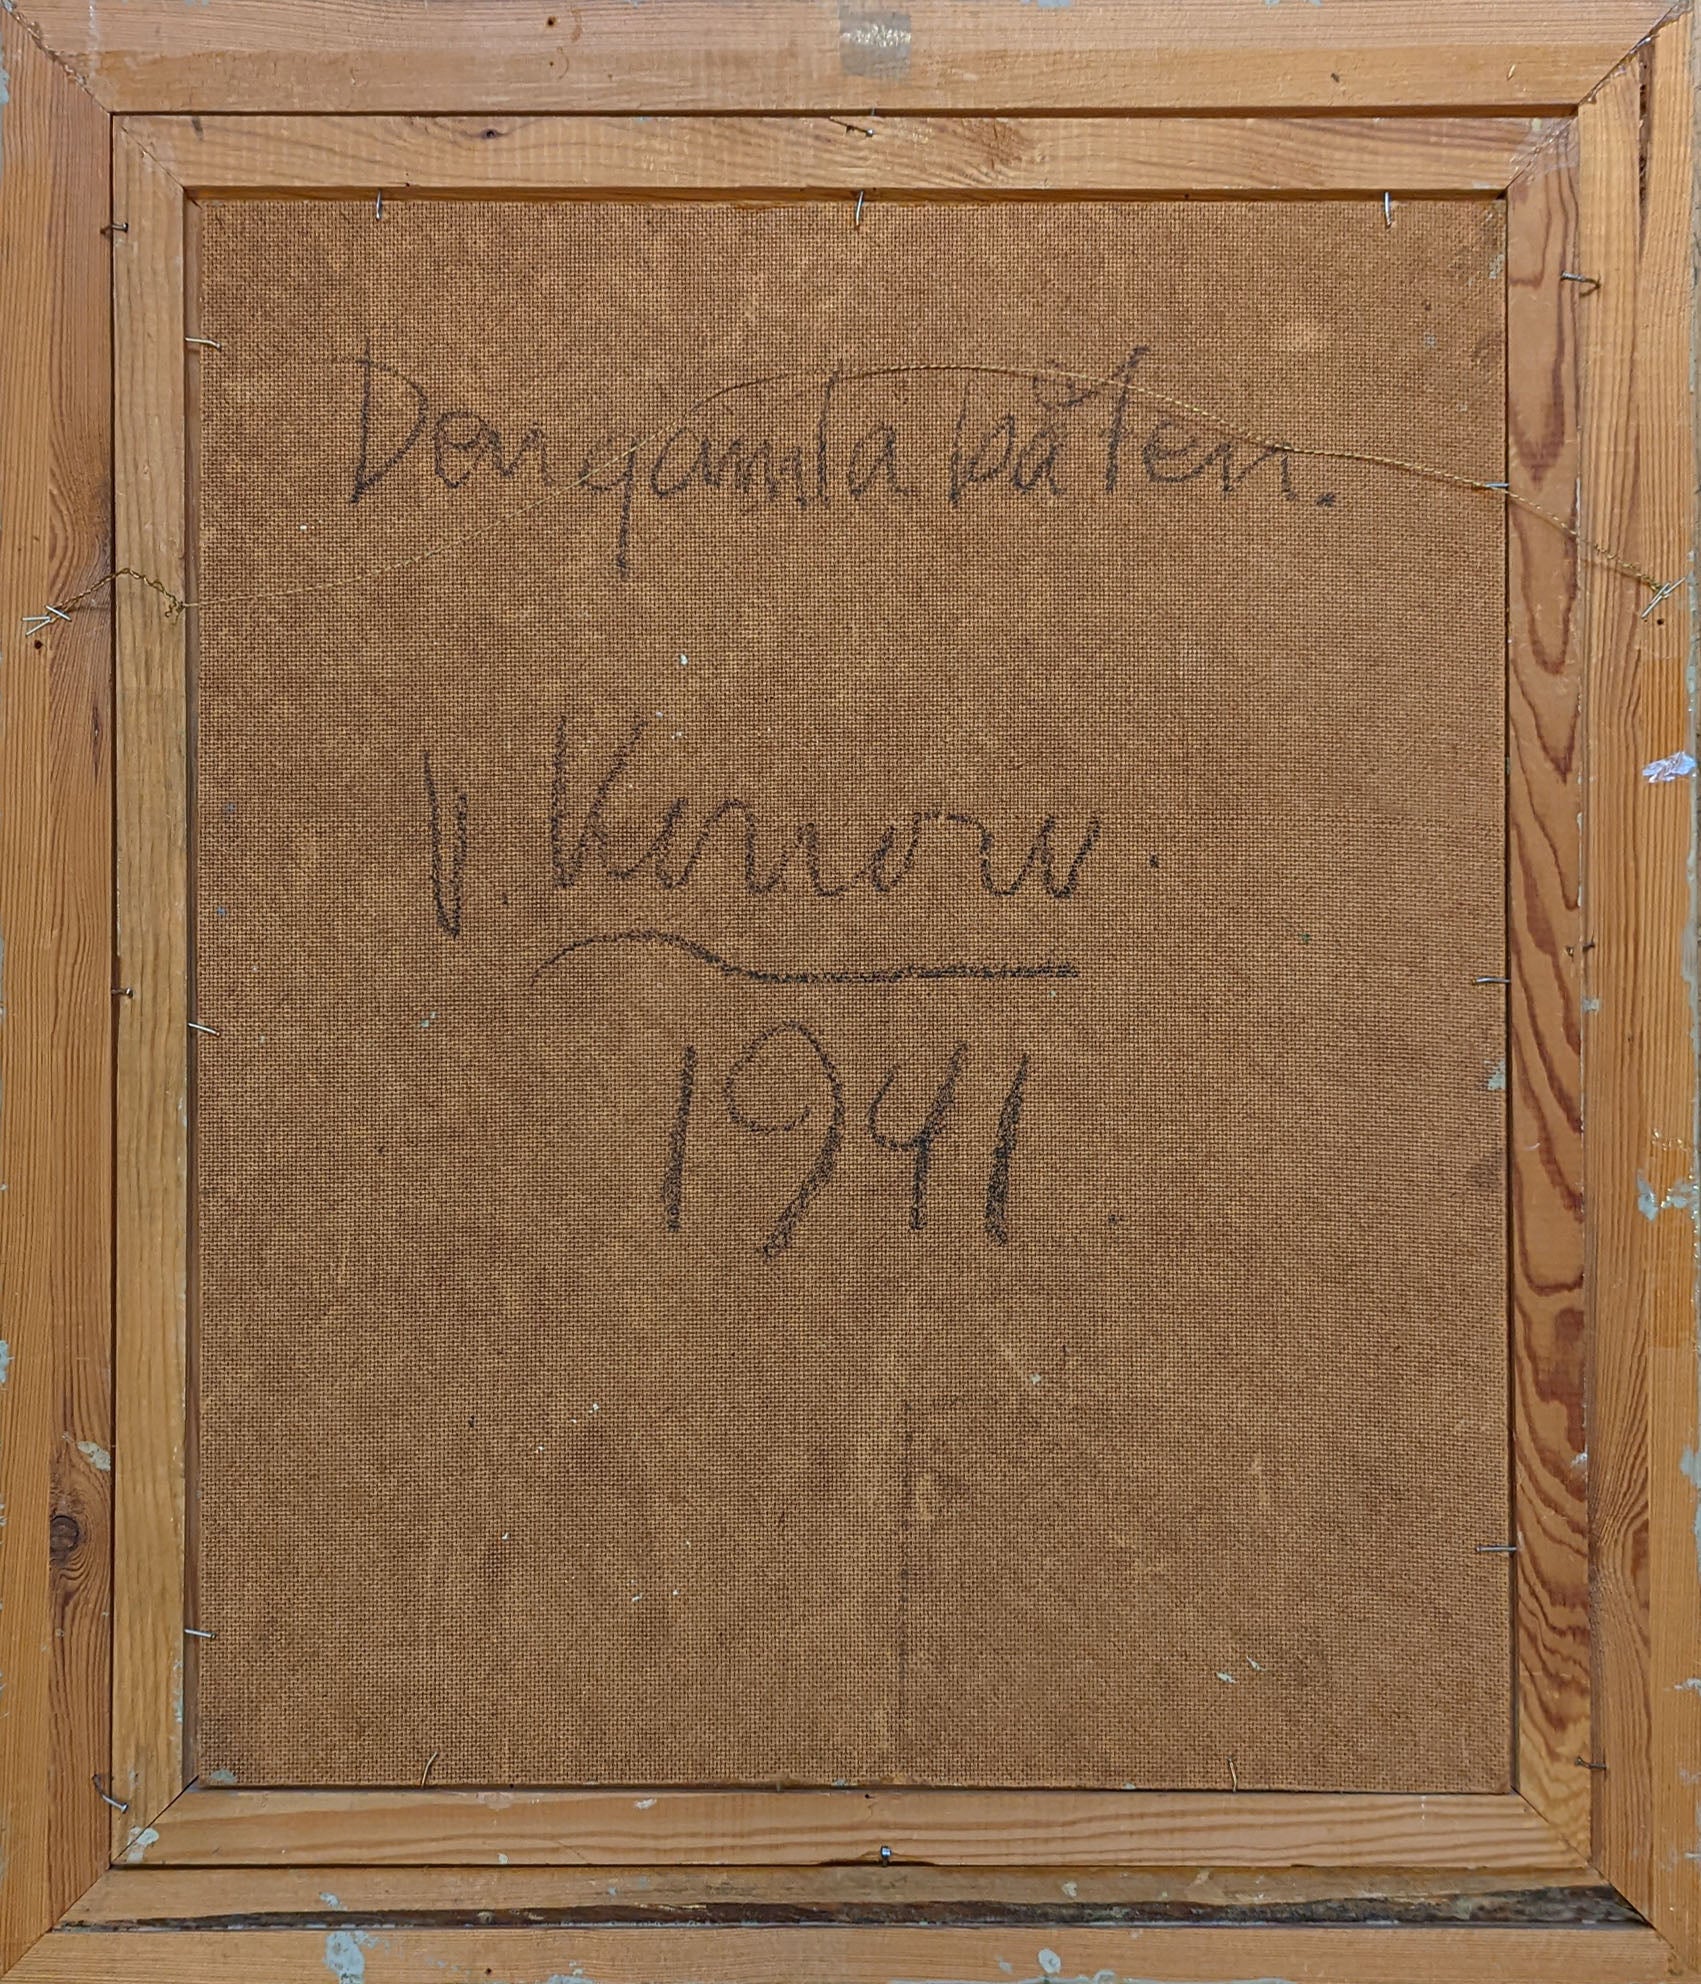 Den gamla båten.
V. Konow.
1941.